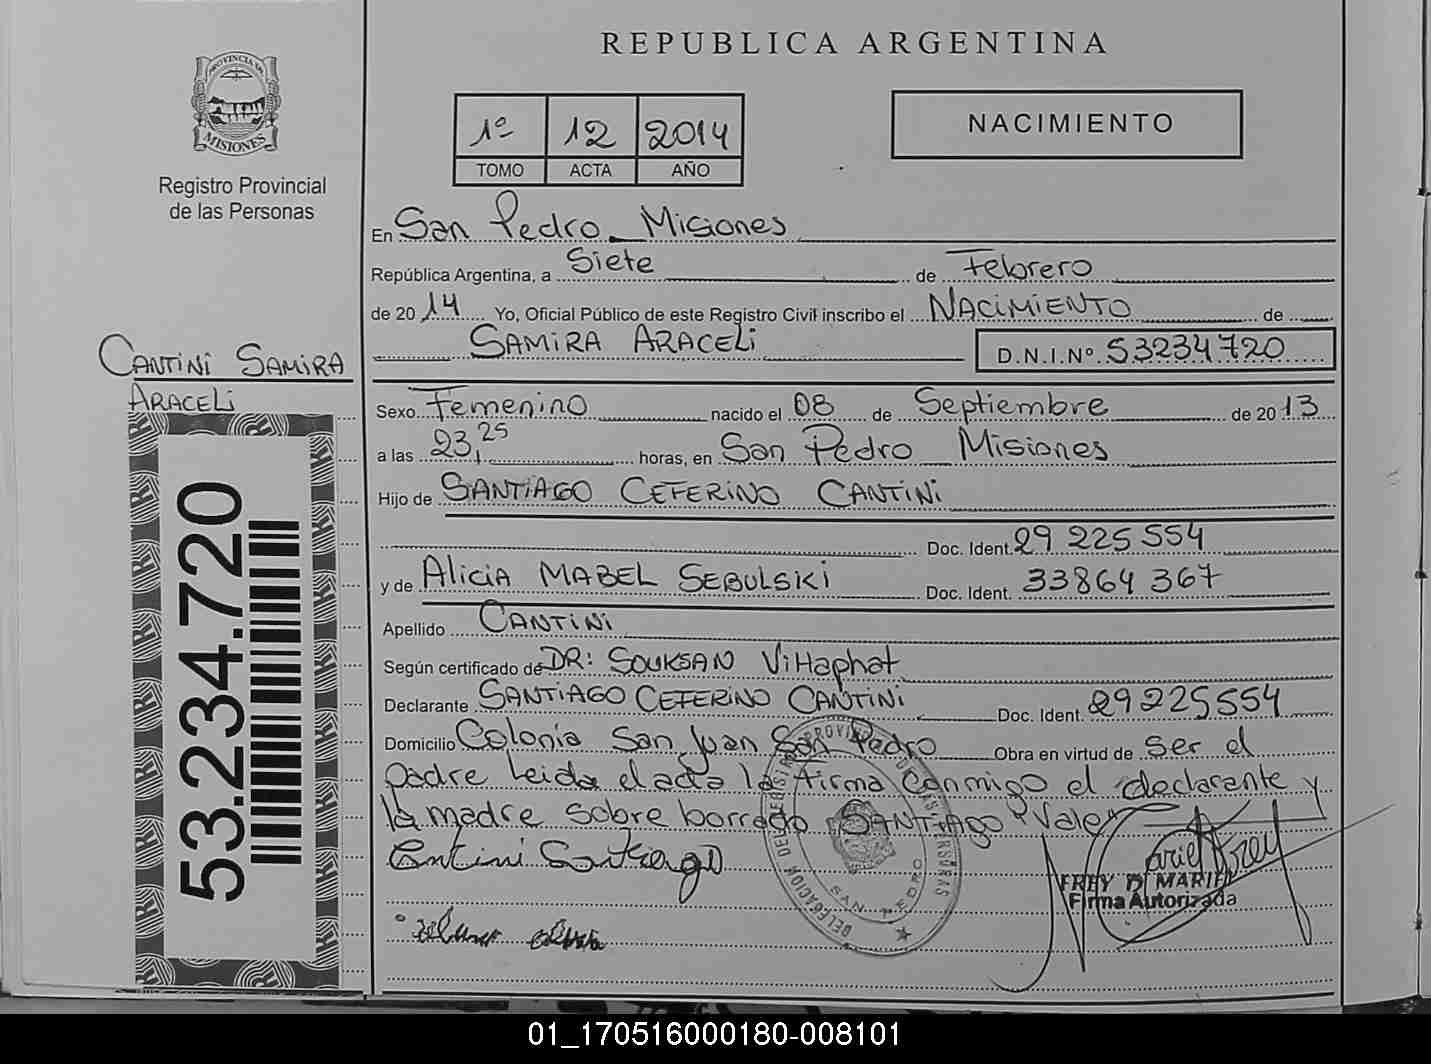 REPUBLICA ARGENTINA
PROVINCIA DE
MISIONES
Registro Provincial
de las Personas
1º 12 2014
TOMO ACTA AÑO
NACIMIENTO
En San Pedro Misiones
República Argentina, a Siete de Febrero
de 2014 Yo, Oficial Público de este Registro Civil inscribo el NACIMIENTO de
SAMIRA ARACELI D.N.I.Nº 53234720
CANTINI SAMIRA
ARACELI
Sexo Femenino nacido el 08 de Septiembre de 2013
a las 23,25 horas, en San Pedro Misiones
Hijo de SANTIAGO CEFERINO CANTINI
Doc. Ident. 29 225 554
y de Alicia MABEL SEBULSKI Doc. Ident. 33864 367
Apellido CANTINI
Según certificado de DR: SOUKSAN VIHaphat
Declarante SANTIAGO CEFERINO CANTINI Doc. Ident. 29225554
Domicilio Colonia San Juan San Pedro Obra en virtud de Ser el
padre Leida el acta la firma conmigo el declarante y
la madre sobre borrado SANTIAGO "Vale"
Cantini Santiago
FREY D. MARIEL
Firma Autorizada
53.234.720
SAN PEDRO
01_170516000180-008101